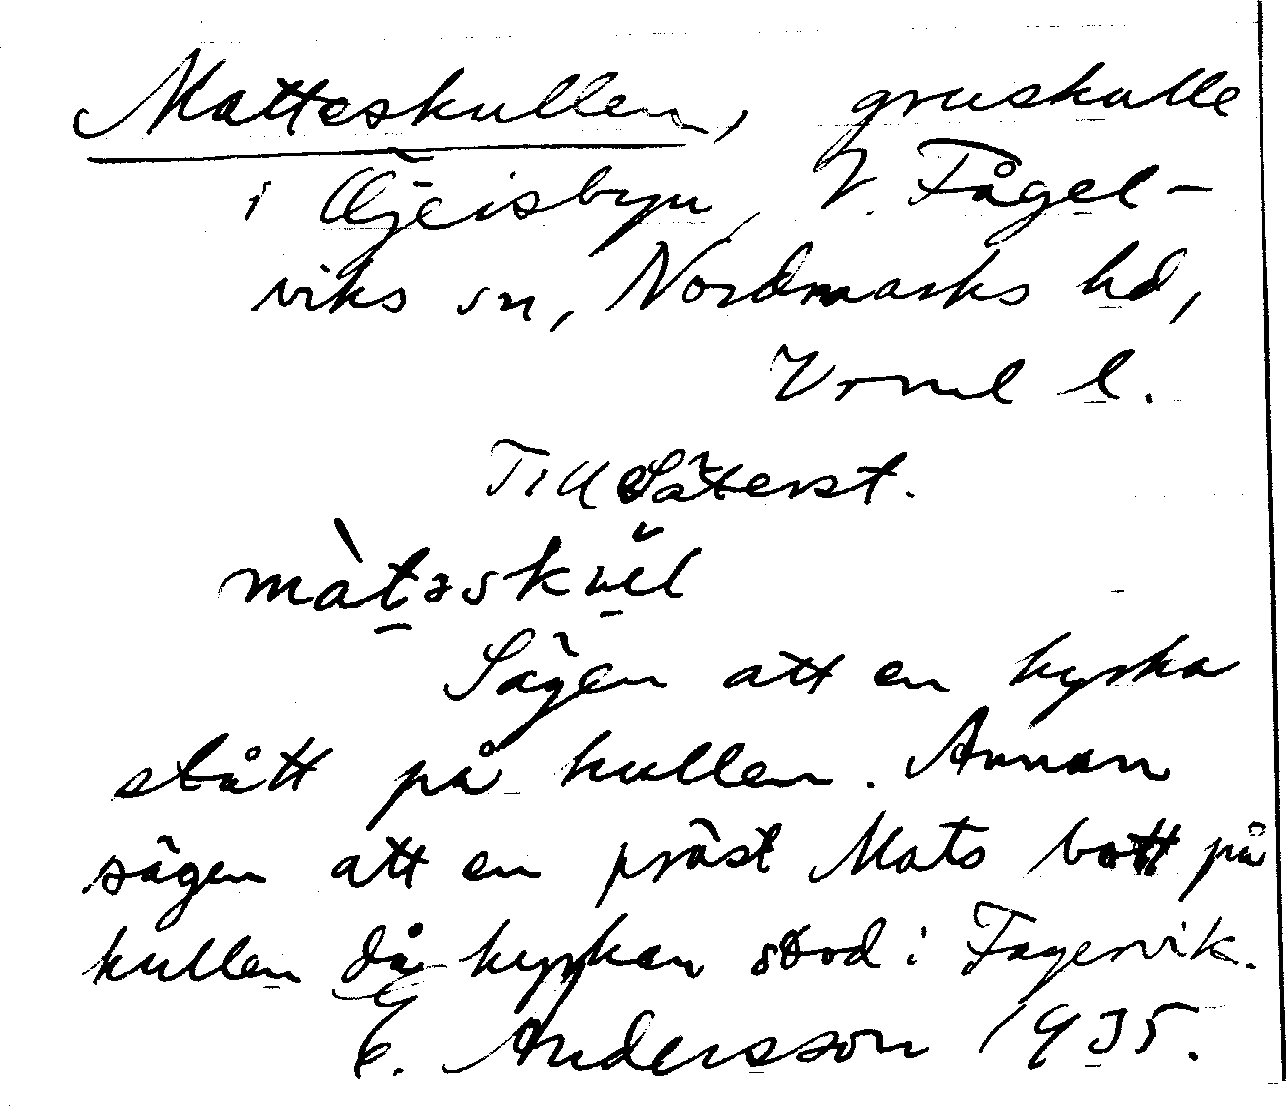 Matteskullen, gruskulle
i Öjersbyn, V. Fågel-
viks sn, Nordmarks hd,
Vrml l.
Till Säterst.
màtəskul
Sägen att en kyrka
stått på kullen. Annan
sägen att en präst Mats bott på
kullen då kyrkan stod i Fagervik.
E. Andersson 1935.